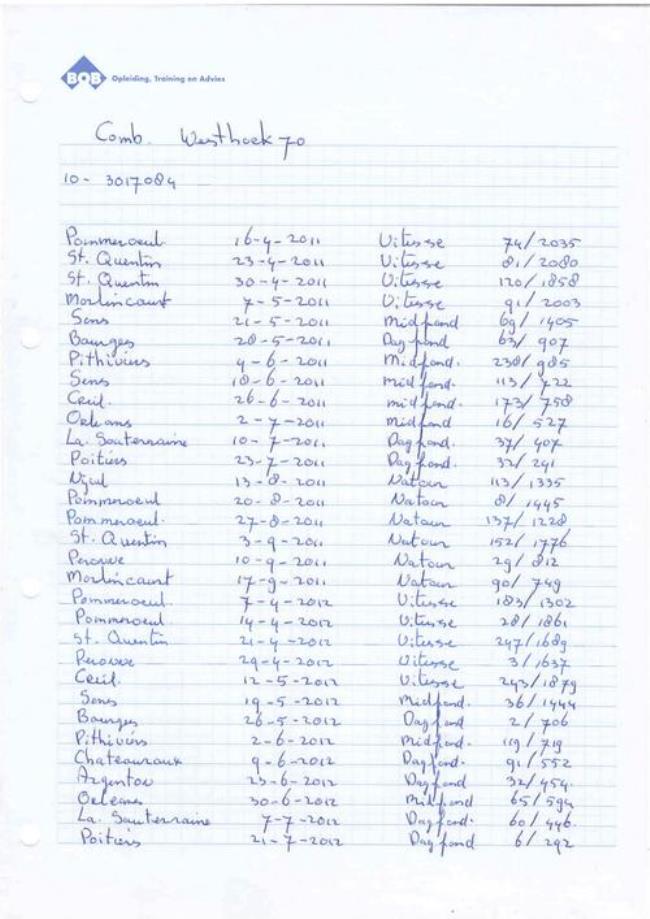 BOB Opleiding, Training en Advies
Comb. Westhoek 70
10- 3017084
Pommeroeul 16-4-2011 Vitesse 74/2035
St. Quentin 23-4-2011 Vitesse 81/2080
St. Quentin 30-4-2011 Vitesse 120/1858
Morlincourt 7-5-2011 Vitesse 91/2003
Sens 21-5-2011 Midfond 69/1405
Bourges 28-5-2011 Dagfond 63/907
Pithiviers 4-6-2011 Midfond. 238/985
Sens 18-6-2011 Midfond. 113/722
Creil. 26-6-2011 midfond. 173/758
Orleans 2-7-2011 Midfond 16/527
La. Souterraine 10-7-2011 Dagfond. 37/407
Poitiers 23-7-2011 Dagfond. 32/241
13-8-2011 Natour 113/1335
Pommeroeul 20-8-2011 Natour 8/1445
Pommeroeul. 27-8-2011 Natour 137/1228
St. Quentin 3-9-2011 Natour 152/1776
Peronne 10-9-2011 Natour 29/812
Morlincourt 17-9-2011 Natour 90/749
Pommeroeul. 7-4-2012 Vitesse 183/1302
Pommeroeul. 14-4-2012 Vitesse 28/1861
St. Quentin 21-4-2012 Vitesse 247/1689
Peronne 29-4-2012 Vitesse 3/1637
Creil. 12-5-2012 Vitesse 243/1879
Sens 19-5-2012 Midfond. 36/1444
Bourges 26-5-2012 Dagfond 2/706
Pithiviers 2-6-2012 Midfond. 119/719
Chateauroux 9-6-2012 Dagfond. 91/552
Argenton 23-6-2012 Dagfond 32/454.
Orleans 30-6-2012 Midfond 65/594
La. Souterraine 7-7-2012 Dagfond. 60/446.
Poitiers 21-7-2012 Dagfond 6/292